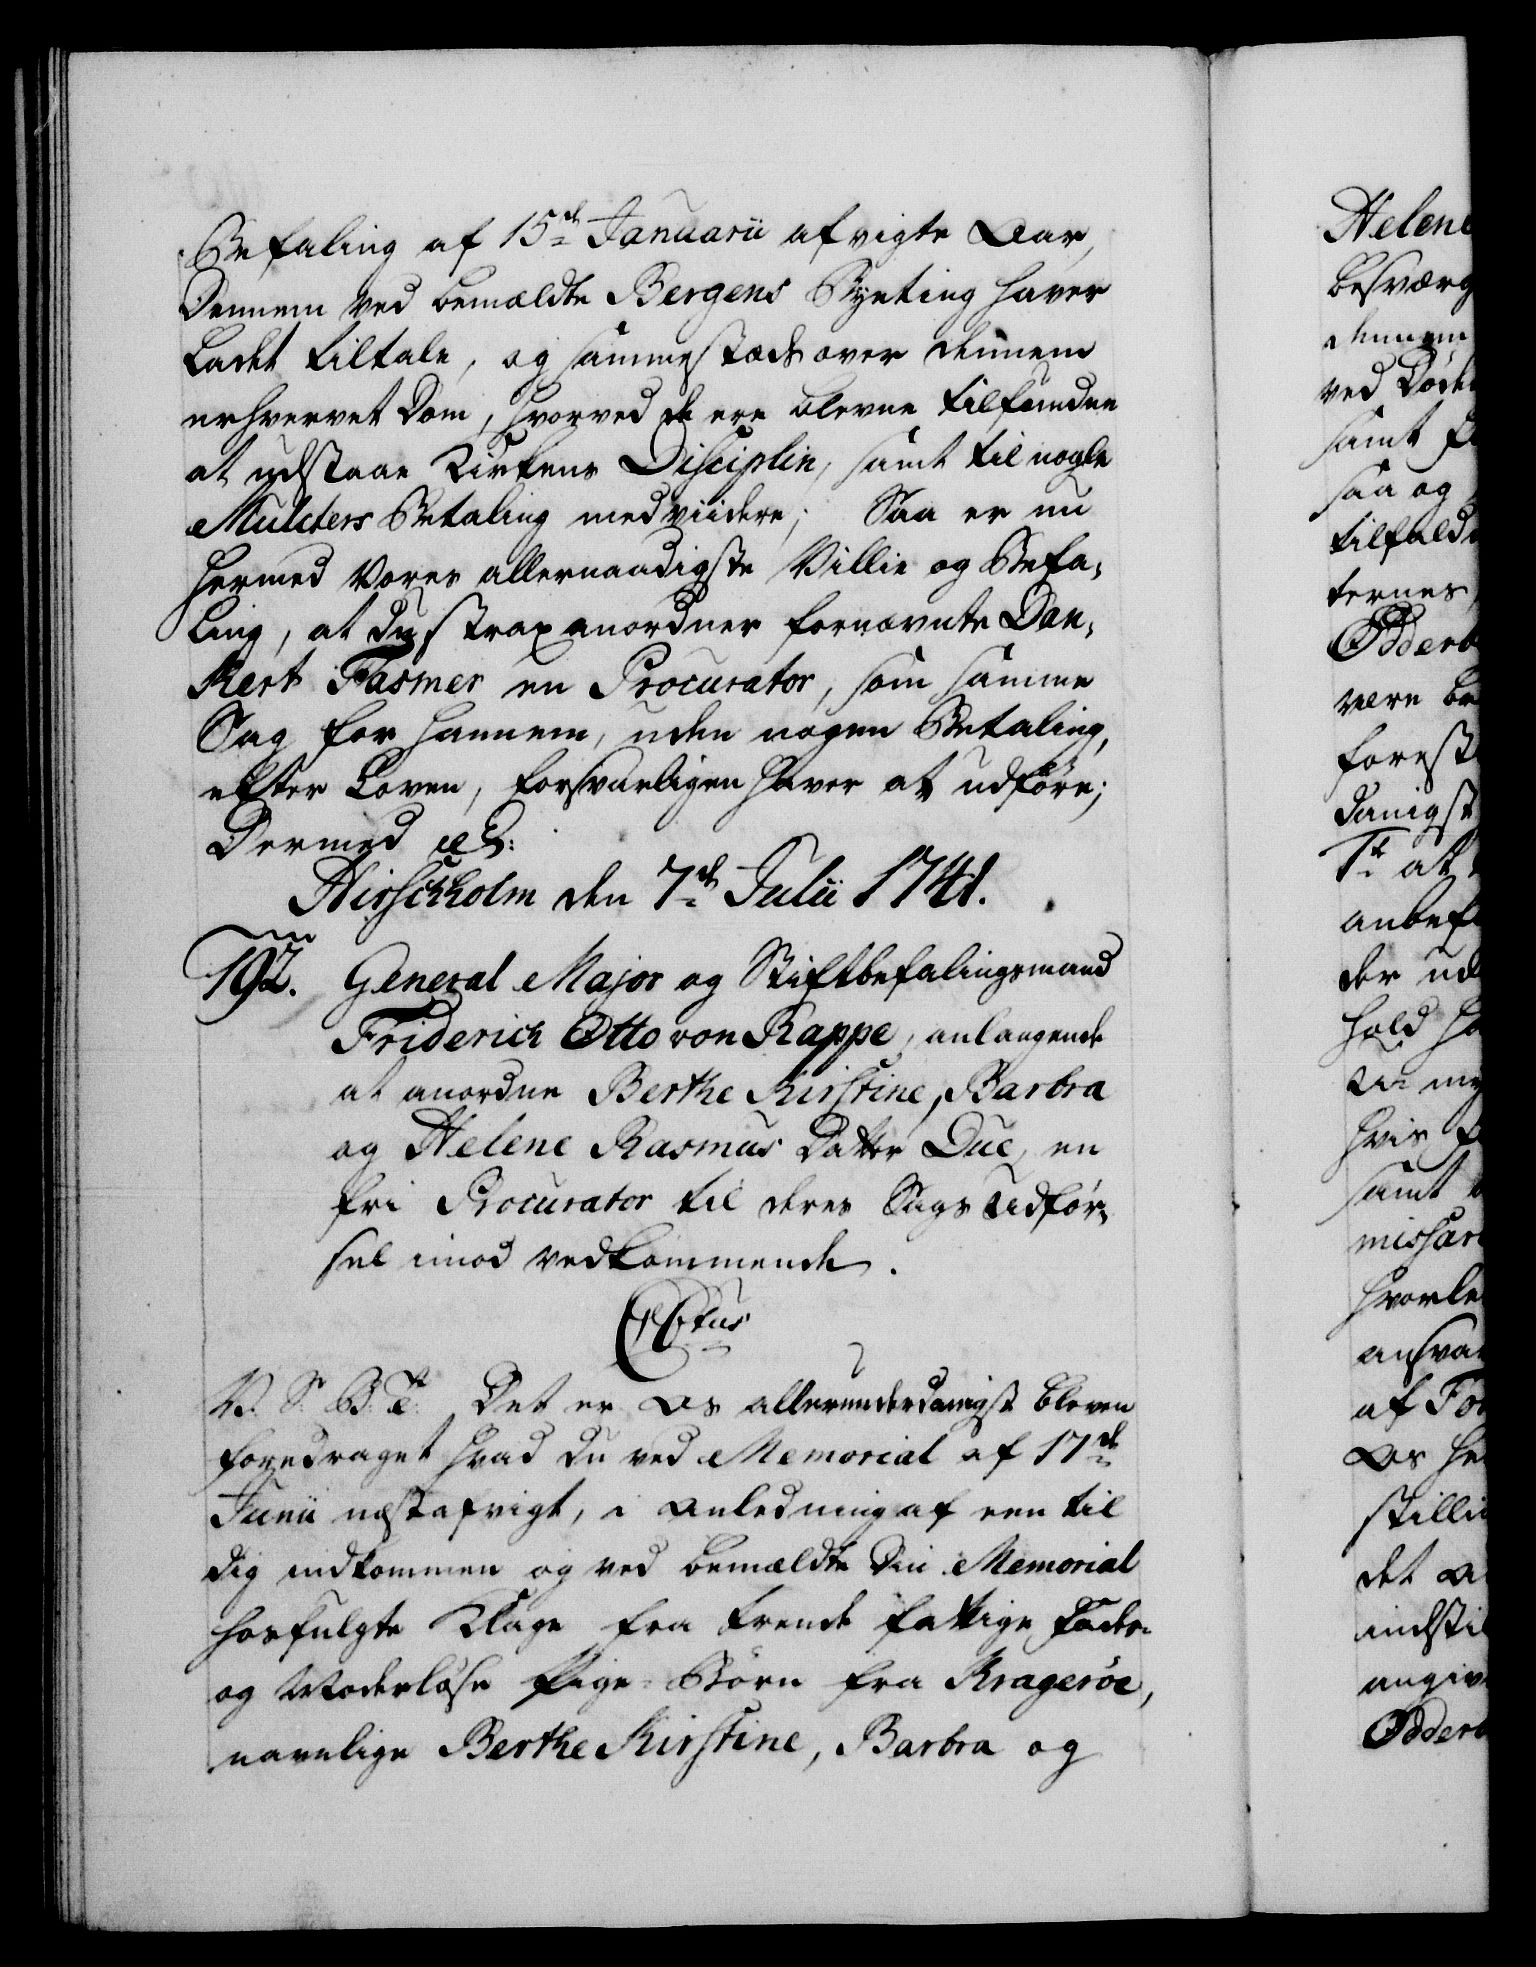 Befaling af 15de Januarii afvigte Aar,
Dennem ved bemældte Bergens Byeting haver
Ladet tiltale, og sammestæds over dennem
erhvervet Dom, hvorved de ere blevne tilfunden
at udstaae Kirkens Disciplin, samt til nogle
Mulcters Betaling med viidere; Saa er nu
hermed Vores allernaadigste Villie og Befa-
ling, at du strax anordner fornævnte Dan-
kert Fasmer en Procurator, som samme
Sag for hannem, uden nogen Betaling,
efter Loven, forsvarligen haver at udføre;
Dermed
Hirschholm den 7de Julii 1741.
192. General Major og Stiftbefalingsmand
Friderich Otto von Rappe, anlangende
at anordne Berthe Kirstine, Barbra
og Helene Rasmus Datter Due, en
fri Procurator til deres Sags Udfør-
sel imod vedkommende.
V. S. G. T. Det er Os allerunderdanigst bleven
foredraget hvad du ved Memorial af 17de
Junii næstafvigt, i Anledning af een til
dig indkommen og ved bemældte Din Memorial
hosfulgte Klage fra trende fattige Fader-
og Moderløse Pige-Børn fra Kragerøe,
navnlige Berthe Kirstine, Barbra og
Helene
besværg
dennem
ved Døde
samt
saa og
tilfald
ternes
Odderb
være be
forest
danigst
1te at
anbef
der ud
hold ha
hvis
samt
missari
hvorle
ansvar
af For
Os he
stilli
det a
indstil
angiv
Odderb